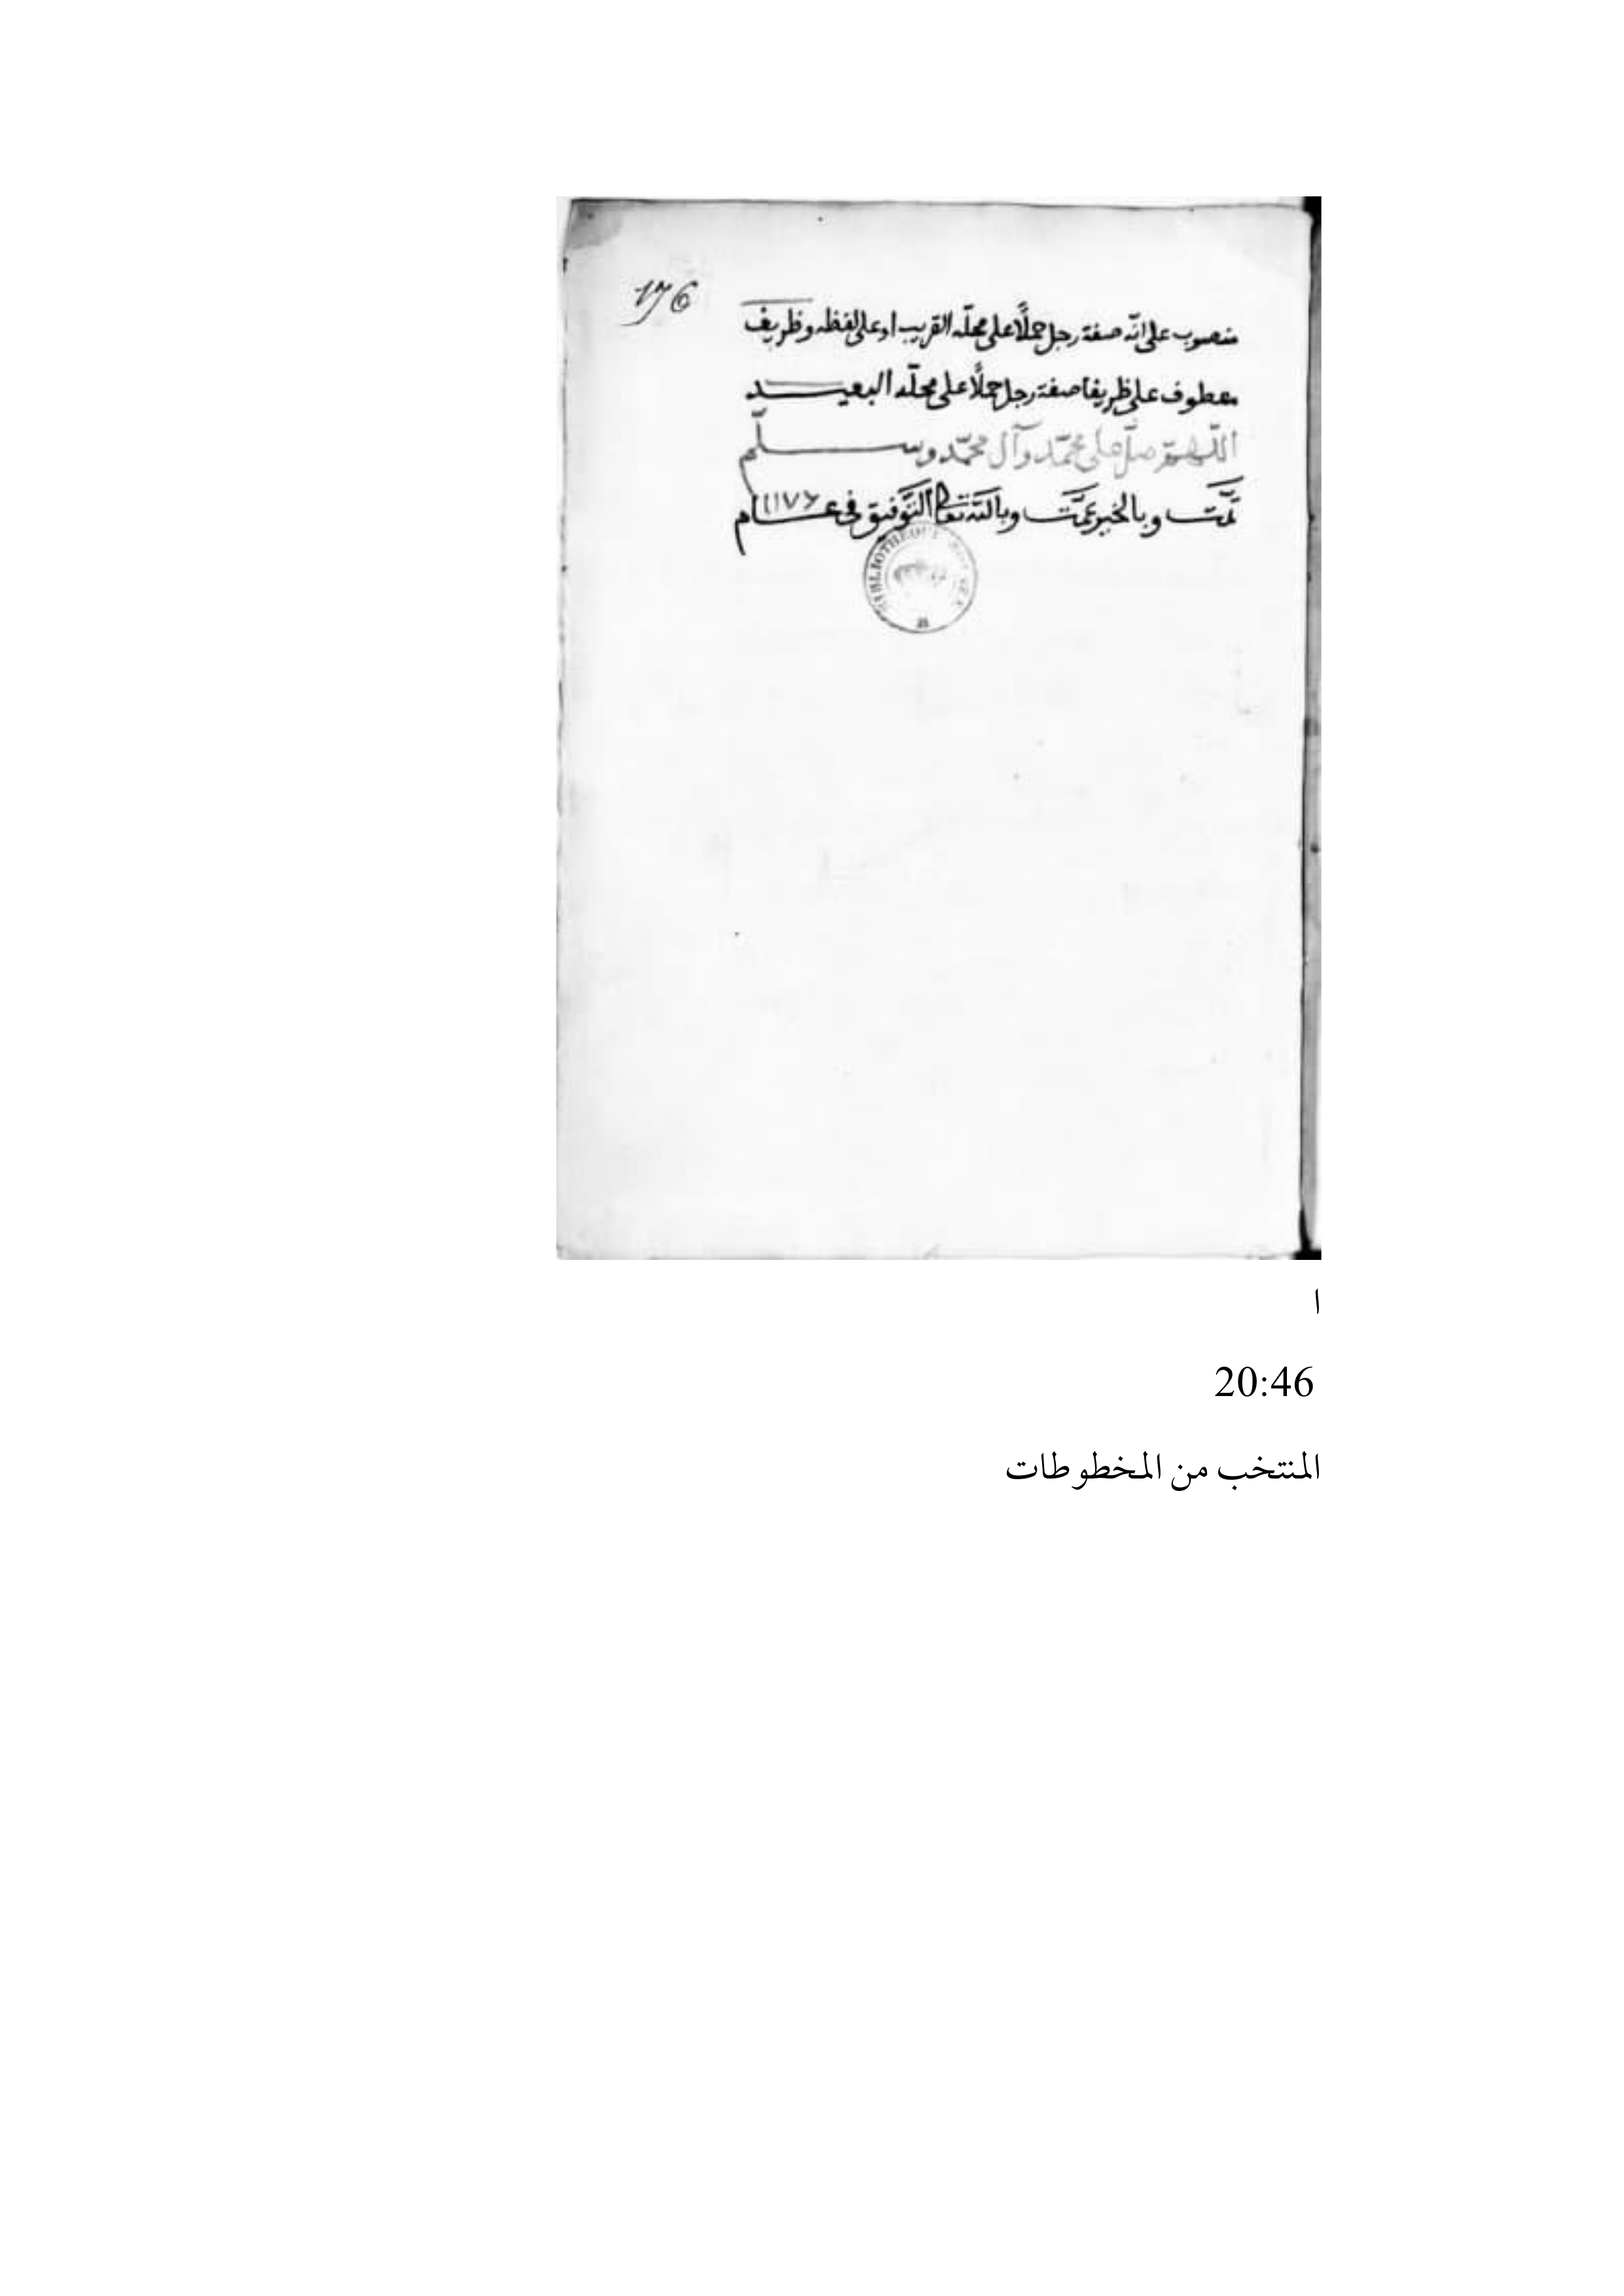 176
منصوب على انّه صفة رجل حملًا على محلّه القريب او على لفظه وظريف
معطوف على ظريفا صفة رجل حملًا على محلّه البعيد
اللّهمّ صلّ على محمّد وآل محمّد وسلّم
تمّت وبالخير عمّت وبالله تعالى التّوفيق فى عام ١١٧٦
BIBLIOTHEQUE
ا
20:46
المنتخب من المخطوطات